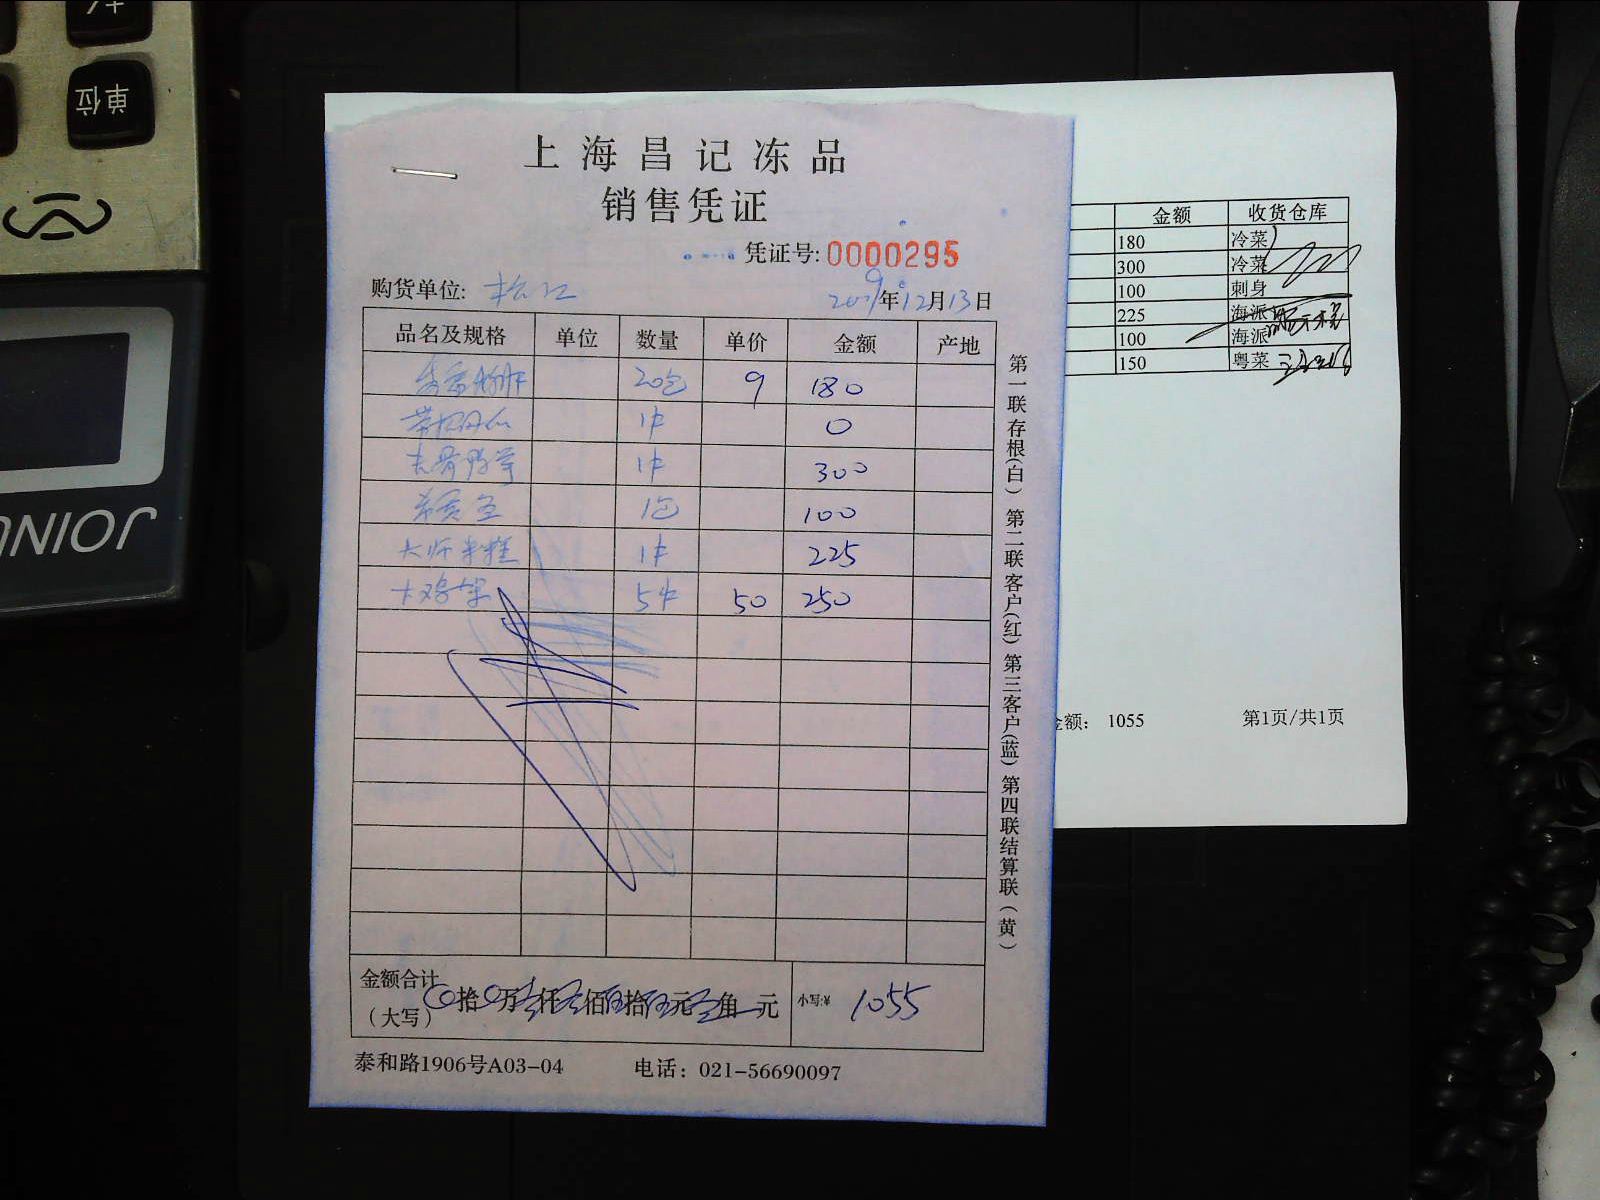 单位
JOINU
上海昌记冻品
销售凭证
凭证号: 0000295
购货单位: 松江
2019年12月13日
品名及规格 单位 数量 单价 金额 产地
20包 9 180
1件 0
1件 300
1包 100
大师 1件 225
大鸡架 5件 50 250
金额合计
(大写) 拾 万 仟 佰 拾 元 角 元 小写:¥ 1055
泰和路1906号A03-04 电话: 021-56690097
第一联存根(白) 第二联客户(红) 第三客户(蓝) 第四联结算联(黄)
金额 收货仓库
180 冷菜
300 冷菜
100 刺身
225 海派
100 海派
150 粤菜
金额: 1055 第1页/共1页